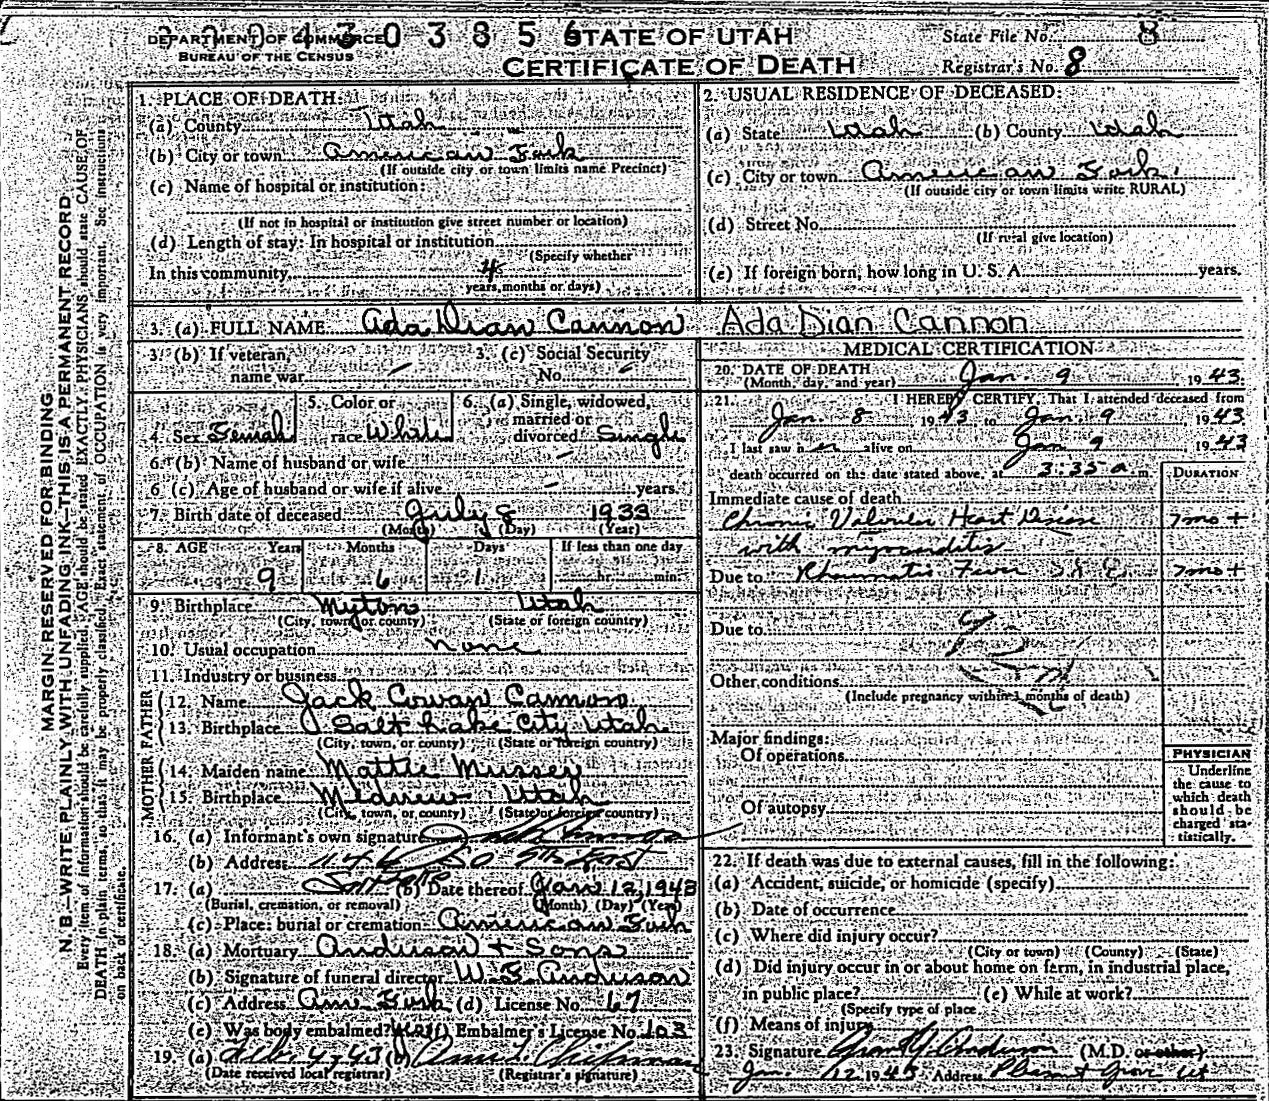 DEPARTMENT OF COMMERCE
BUREAU OF THE CENSUS
043038 5 6
STATE OF UTAH
CERTIFICATE OF DEATH
State File No. 8
Registrar's No. 8
MARGIN RESERVED FOR BINDING
N. B.—WRITE PLAINLY WITH UNFADING INK—THIS IS A PERMANENT RECORD
Every item of information should be carefully supplied. AGE should be stated EXACTLY. PHYSICIANS should state CAUSE OF
DEATH in plain terms, so that it may be properly classified. Exact statement of OCCUPATION is very important. See instructions
on back of certificate.
1. PLACE OF DEATH:
(a) County Utah
(b) City or town American Fork
(If outside city or town limits name Precinct)
(c) Name of hospital or institution:
(If not in hospital or institution give street number or location)
(d) Length of stay: In hospital or institution
(Specify whether
In this community 4
years, months or days)
2. USUAL RESIDENCE OF DECEASED:
(a) State Utah (b) County Utah
(c) City or town American Fork.
(If outside city or town limits write RURAL)
(d) Street No.
(If rural give location)
(e) If foreign born, how long in U. S. A. years.
3. (a) FULL NAME Ada Dian Cannon Ada Dian Cannon
3. (b) If veteran, name war — 3. (c) Social Security No. -
4. Sex Female 5. Color or race White 6. (a) Single, widowed, married or divorced Single
6. (b) Name of husband or wife —
6 (c). Age of husband or wife if alive — years.
7. Birth date of deceased July 8 1933
(Month) (Day) (Year)
8. AGE Years Months Days If less than one day
9 6 1 hr. min.
9. Birthplace Myton Utah
(City, town, or county) (State or foreign country)
10. Usual occupation none
11. Industry or business
FATHER
12. Name Jack Cowan Cannon
13. Birthplace Salt Lake City Utah.
(City, town, or county) (State or foreign country)
MOTHER
14. Maiden name Mattie
15. Birthplace Utah
(City, town, or county) (State or foreign country)
16. (a) Informant's own signature
(b) Address 146 So 5th East
17. (a) (b) Date thereof Jan 12, 1943
(Burial, cremation, or removal) (Month) (Day) (Year)
(c) Place: burial or cremation American Fork
18. (a) Mortuary Anderson + Sons
(b) Signature of funeral director Anderson
(c) Address Am. Fork (d) License No. 67
(e) Was body embalmed? (f) Embalmer's License No. 103
19. (a) Feb. 4, 43 (b)
(Date received local registrar) (Registrar's signature)
MEDICAL CERTIFICATION
20. DATE OF DEATH
(Month, day, and year) Jan. 9 1943.
21. I HEREBY CERTIFY, That I attended deceased from
Jan. 8 1943, to Jan. 9, 1943
I last saw her alive on Jan 9 1943
death occurred on the date stated above, at 3:35 a m.
DURATION
Immediate cause of death
Chronic Valvular Heart Disease 7 mo +
with myocarditis
Due to Rheumatic Fever 7 mo +
Due to
Other conditions
(Include pregnancy within 3 months of death)
Major findings:
Of operations
Of autopsy
PHYSICIAN
Underline
the cause to
which death
should be
charged sta-
tistically.
22. If death was due to external causes, fill in the following:
(a) Accident, suicide, or homicide (specify)
(b) Date of occurrence
(c) Where did injury occur?
(City or town) (County) (State)
(d) Did injury occur in or about home on farm, in industrial place,
in public place? (e) While at work?
(Specify type of place
(f) Means of injury
23. Signature Grant Y. Anderson (M.D. or other)
Jan. 12 1943 Address Pleasant Grove, Ut